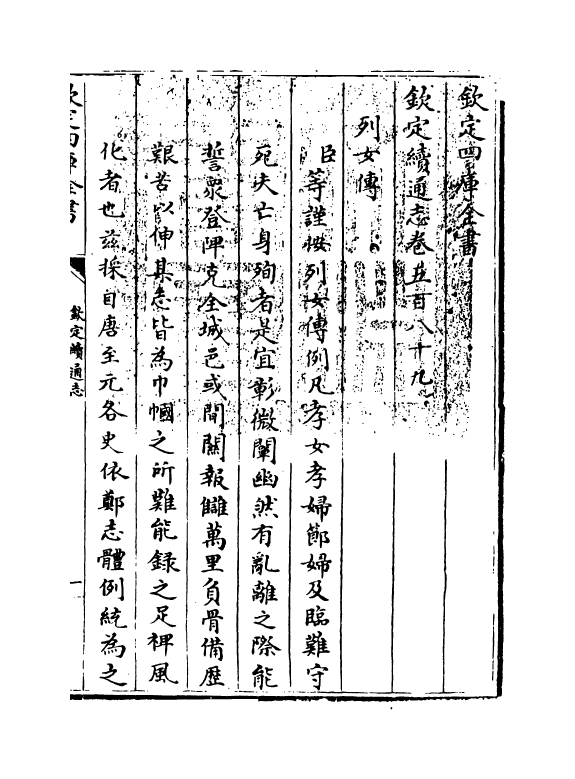 欽定四庫全書
欽定續通志卷五百八十九
列女傳
臣等謹按列女傳例凡孝女孝婦節婦及臨難守
死夫亡身殉者是宜彰微闡幽然有亂離之際能
誓衆登陴克全城邑或間關報讎萬里負骨備歴
艱苦以伸其志皆為巾幗之所難能録之足禆風
化者也兹採自唐至元各史依鄭志體例統為之
欽定四庫全書
欽定續通志
一